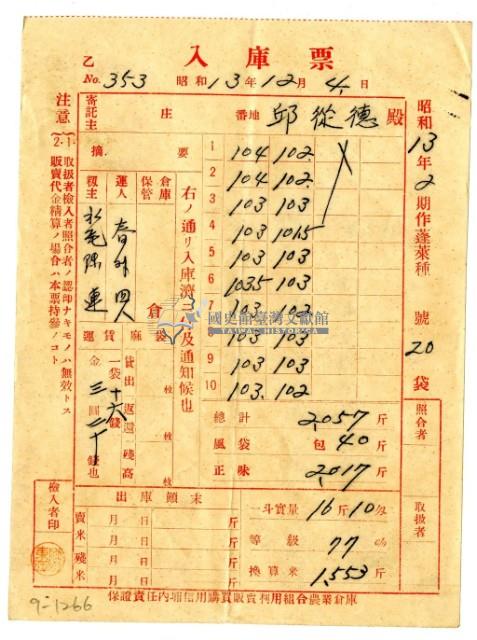 入庫票
乙
No. 353 昭和13年12月4日
寄託主 庄 番地 邱從德殿
摘要
1 104 102
2 104 102
3 103 103
4 103 103
5 103 1015
6 1035 103
7 103 102
103 103
9 103 103
10 103 102
昭和13年2期作蓬萊種 號 20袋
右ノ通リ入庫濟ニ及通知候也
倉庫
保管
運人
籾主
倉
運賃
麻袋
貸出 枚
返還 枚
殘高 枚
一袋十六錢
金三圓二十錢也
總計 2,057斤
風袋 包 40斤
正味 2,017斤
一斗實量 16斤10
等級 77
換算米 1,553斤
照合者
取扱者
出庫顛末
賣米 月 日 斤
月 日 斤
殘米 月 日 斤
月 日 斤
檢入者印
注意
1. 取扱者檢入者照合者ノ認印ナキモノハ無效トス
2. 販賣代金精算ノ場合ハ本票持參ノコト
保證責任內埔信用購買販賣利用組合農業倉庫
9-1266
國史館臺灣文獻館
TAIWAN HISTORICA